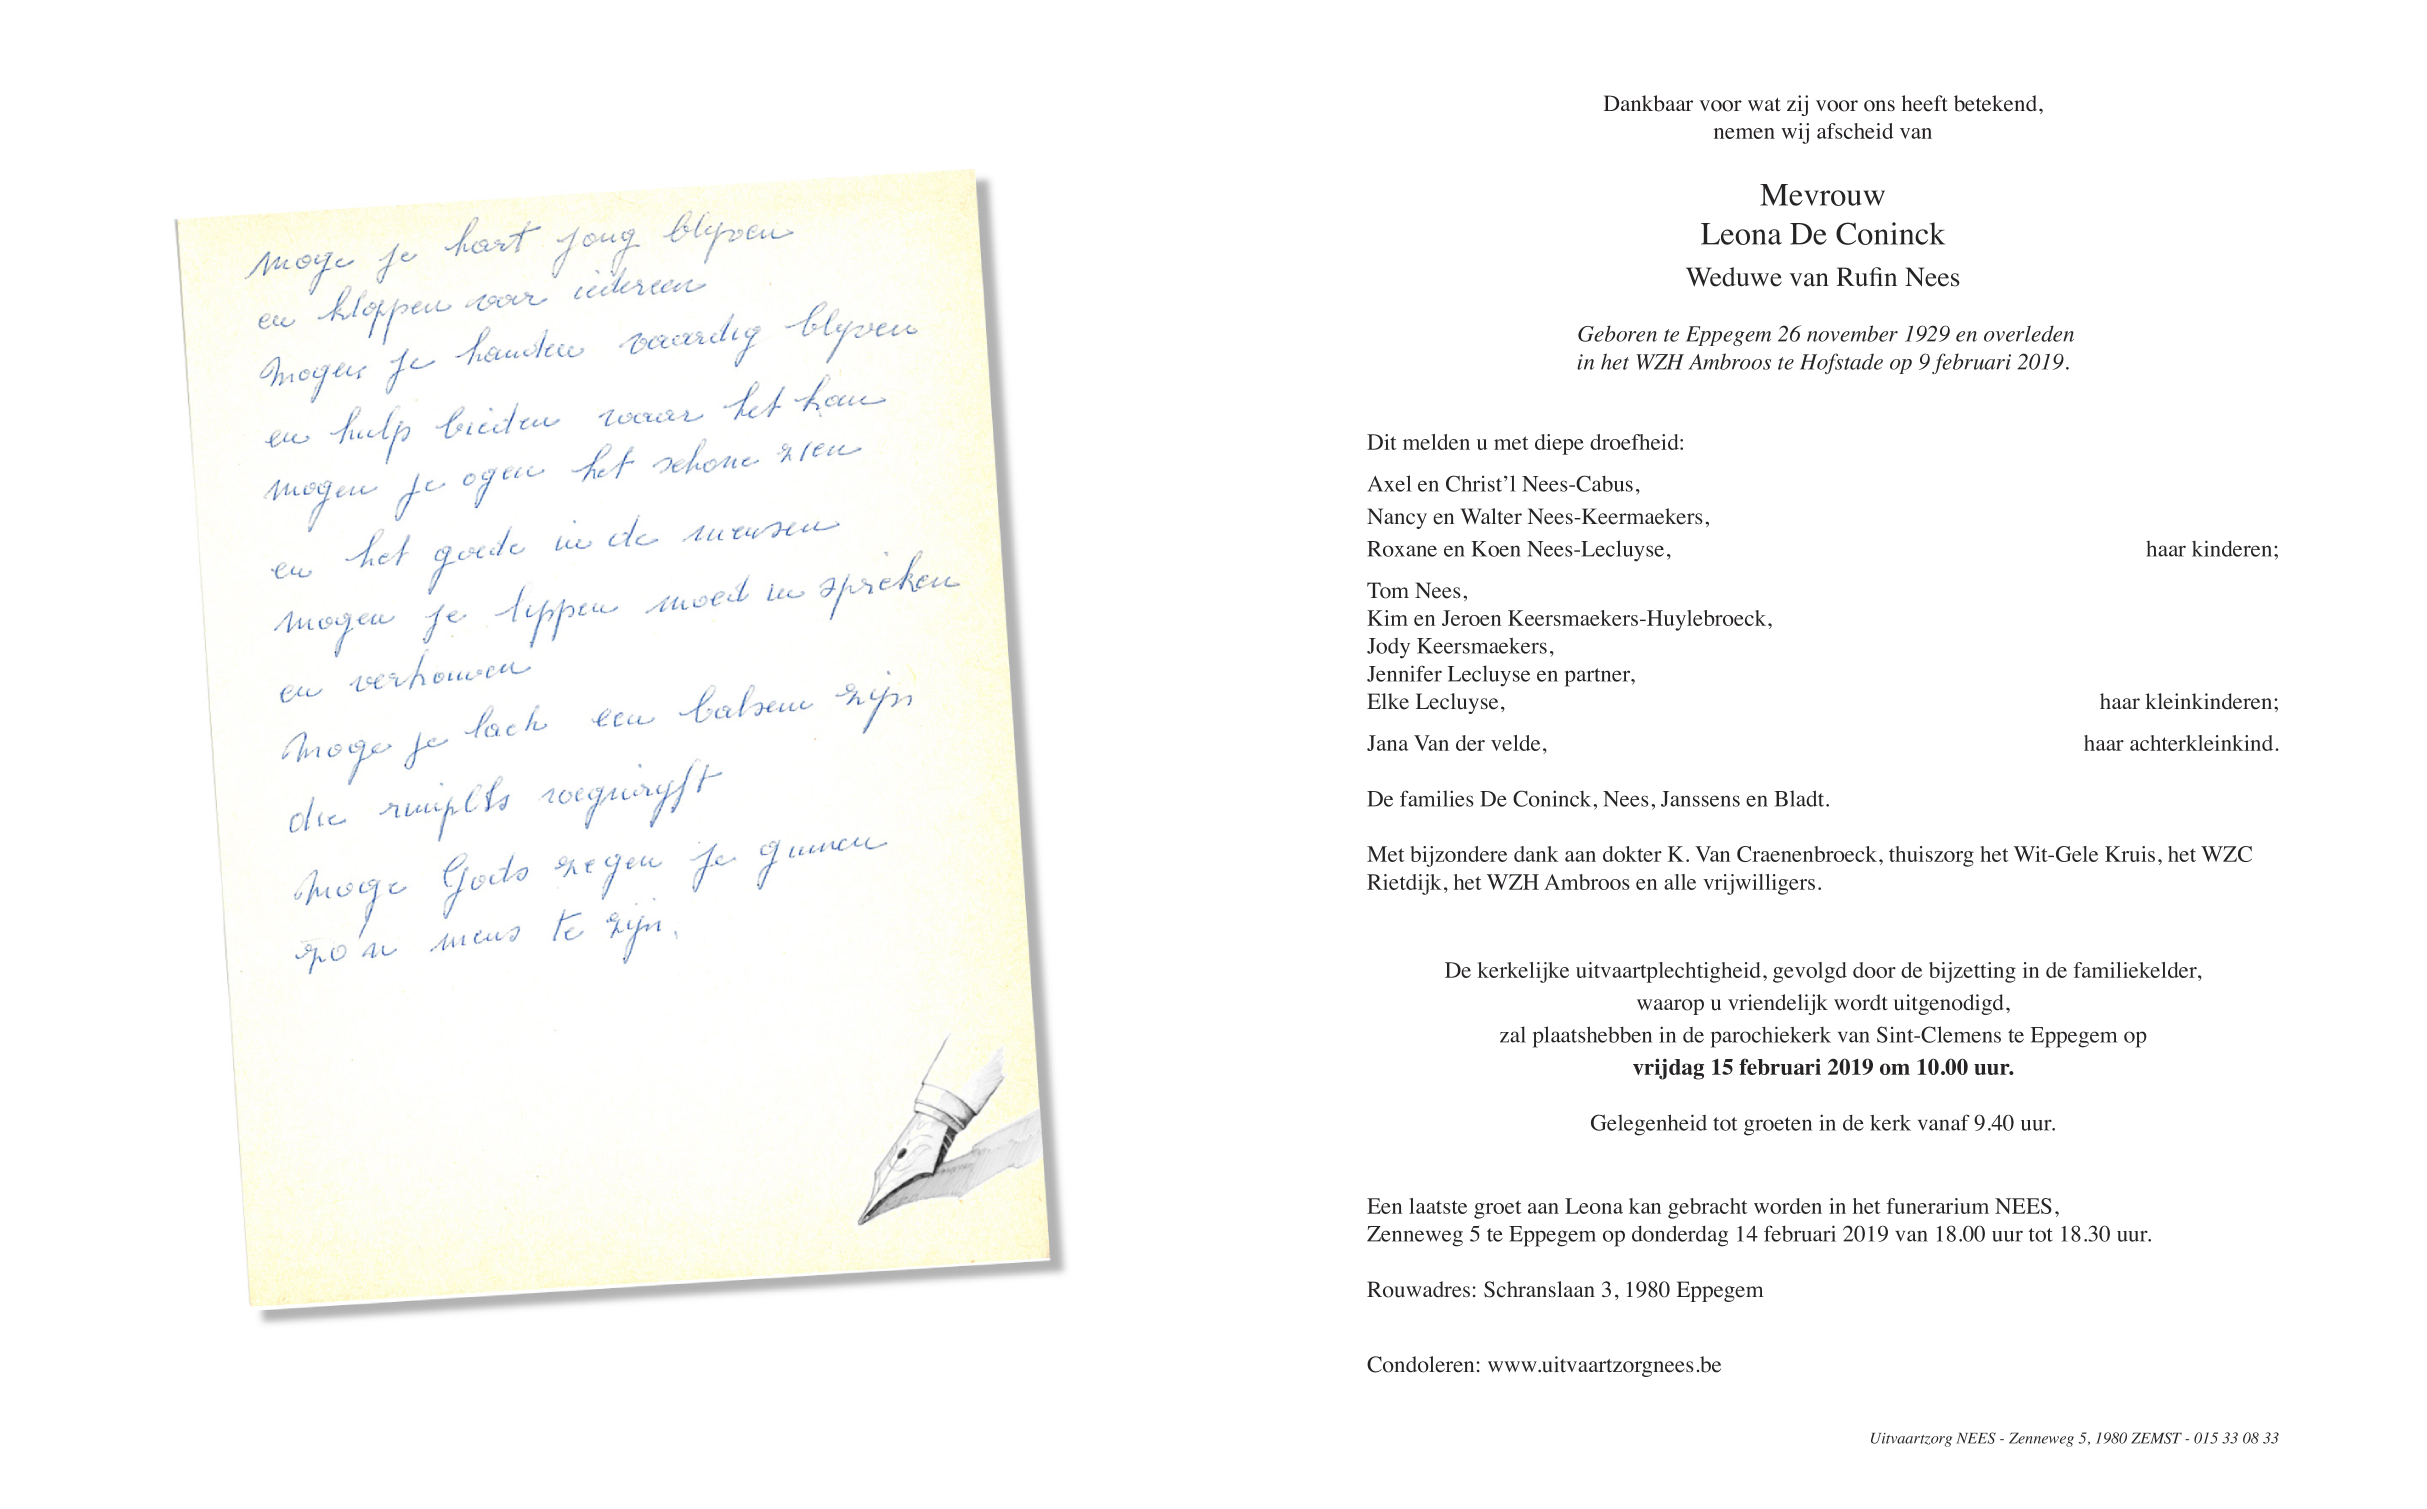 Moge je hart jong blyven
en kloppen voor iedereen
Mogen je handen vaardig blyven
en hulp bieden waar het kan
Mogen je ogen het schone zien
en het goede in de mensen
Mogen je lippen moed in spreken
en vertrouwen
Moge je lach een balsem zijn
die wegwryft
Moge Gods zegen je gunnen
zo'n mens te zijn.
Dankbaar voor wat zij voor ons heeft betekend,
nemen wij afscheid van
Mevrouw
Leona De Coninck
Weduwe van Rufin Nees
Geboren te Eppegem 26 november 1929 en overleden
in het WZH Ambroos te Hofstade op 9 februari 2019.
Dit melden u met diepe droefheid:
Axel en Christ’l Nees-Cabus,
Nancy en Walter Nees-Keermaekers,
Roxane en Koen Nees-Lecluyse, haar kinderen;
Tom Nees,
Kim en Jeroen Keersmaekers-Huylebroeck,
Jody Keersmaekers,
Jennifer Lecluyse en partner,
Elke Lecluyse, haar kleinkinderen;
Jana Van der velde, haar achterkleinkind.
De families De Coninck, Nees, Janssens en Bladt.
Met bijzondere dank aan dokter K. Van Craenenbroeck, thuiszorg het Wit-Gele Kruis, het WZC
Rietdijk, het WZH Ambroos en alle vrijwilligers.
De kerkelijke uitvaartplechtigheid, gevolgd door de bijzetting in de familiekelder,
waarop u vriendelijk wordt uitgenodigd,
zal plaatshebben in de parochiekerk van Sint-Clemens te Eppegem op
vrijdag 15 februari 2019 om 10.00 uur.
Gelegenheid tot groeten in de kerk vanaf 9.40 uur.
Een laatste groet aan Leona kan gebracht worden in het funerarium NEES,
Zenneweg 5 te Eppegem op donderdag 14 februari 2019 van 18.00 uur tot 18.30 uur.
Rouwadres: Schranslaan 3, 1980 Eppegem
Condoleren: www.uitvaartzorgnees.be
Uitvaartzorg NEES - Zenneweg 5, 1980 ZEMST - 015 33 08 33